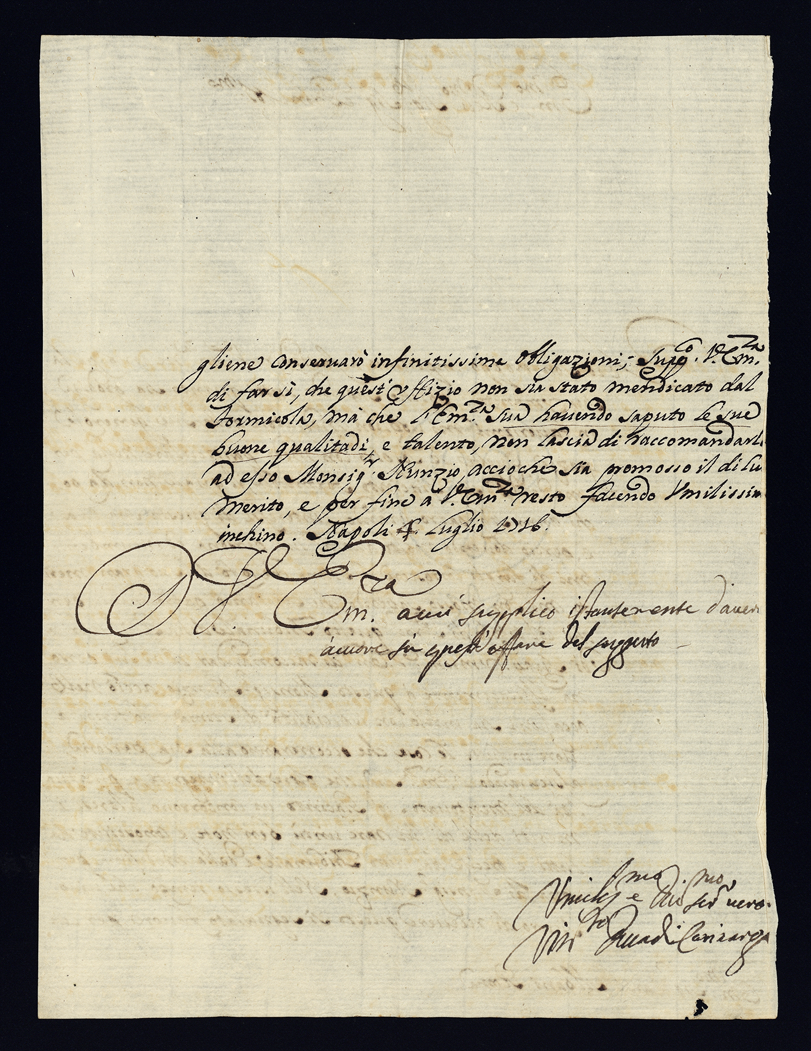 gliene conseruarò infinitissime obligazioni; Suppco. V. Emza.
di farsi, che quest'offizio non sia stato mendicato dal
Formicola, mà che l'Emza. Sua hauendo saputo le sue
buone qualitadi, e talento, non lascia di raccomandarl
ad esso Monsigr. Nunzio, accioche sia promosso il di lu
merito, e per fine a V. Emza. resto facendo Vmilissim
inchino. Napoli 4. Luglio 1716.
D V Emza.
supplico istantemente d'auer
del suggetto
Vmilissmo e